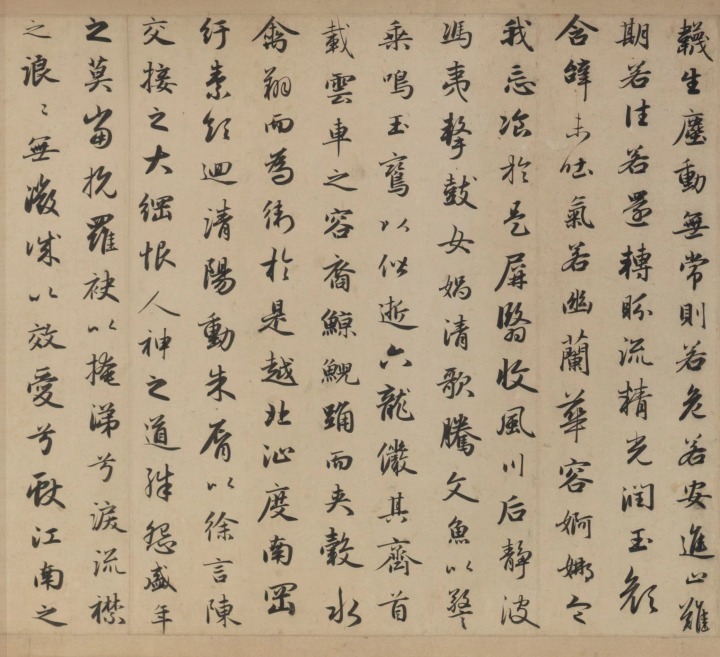 韈生塵動無常則若危若安進止難
期若往若還轉眄流精光潤玉顏
含辭未吐氣若幽蘭華容婀娜令
我忘飡於是屏翳收風川后靜波
馮夷擊鼓女媧清歌騰文魚以警
乘鳴玉鸞以偕逝六龍儼其齊首
載雲車之容裔鯨鯢踊而夾轂水
禽翔而為衛於是越北沚度南岡
紆素領迴清陽動朱脣以徐言陳
交接之大綱恨人神之道殊怨盛年
之莫當抗羅袂以掩涕兮淚流襟
之浪〻無微誠以效愛兮獻江南之